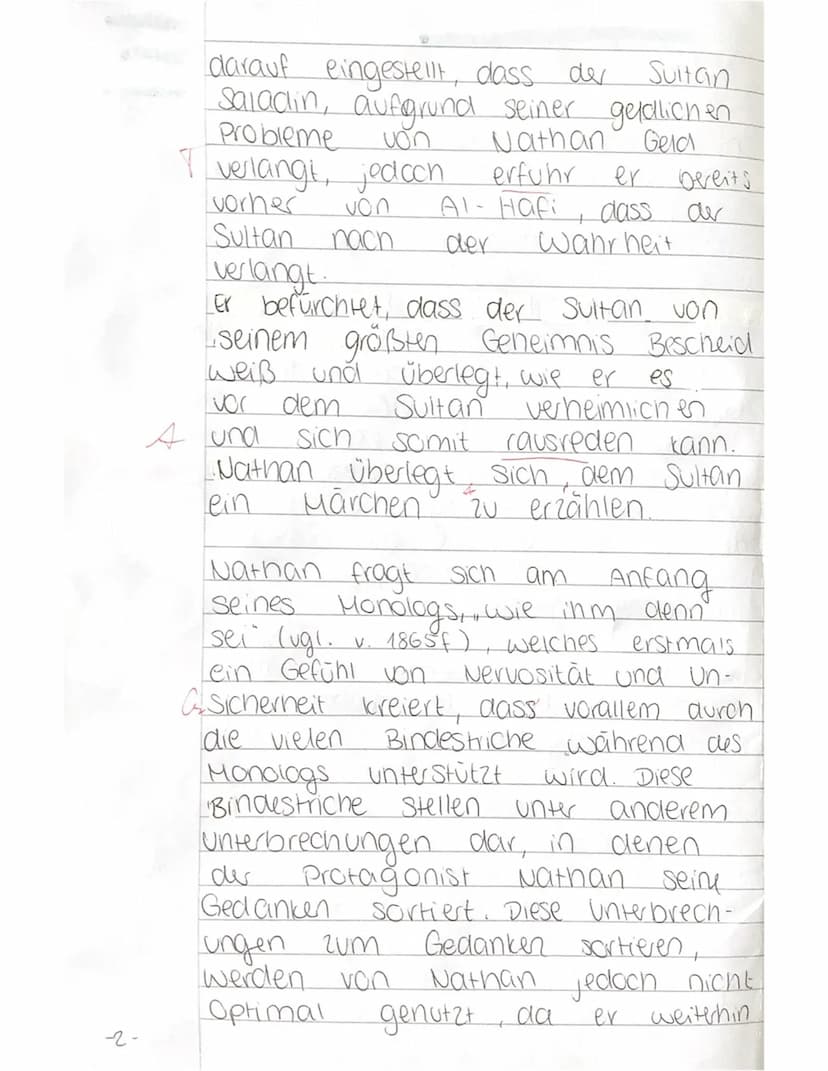 darauf eingestellt, dass der Sultan
Saladin, aufgrund seiner geldlichen
Probleme von Nathan Geld
T verlangt, jedoch erfuhr er bereits
vorher von Al-Hafi, dass der
Sultan nach der Wahrheit
verlangt.
Er befürchtet, dass der Sultan von
seinem größten Geheimnis Bescheid
weiß und überlegt, wie er es
vor dem Sultan verheimlichen
A und sich somit rausreden kann.
Nathan überlegt sich, dem Sultan
ein Märchen zu erzählen.
Nathan fragt sich am Anfang
seines Monologs, „wie ihm denn
sei" (vgl. v. 1865f), welches erstmals
ein Gefühl von Nervosität und Un-
Gr sicherheit kreiert, dass vorallem durch
die vielen Bindestriche während des
Monologs unterstützt wird. Diese
Bindestriche stellen unter anderem
Unterbrechungen dar, in denen
der Protagonist Nathan seine
Gedanken sortiert. Diese Unterbrech-
ungen zum Gedanken sortieren,
werden von Nathan jedoch nicht
Optimal genutzt, da er weiterhin
-2-